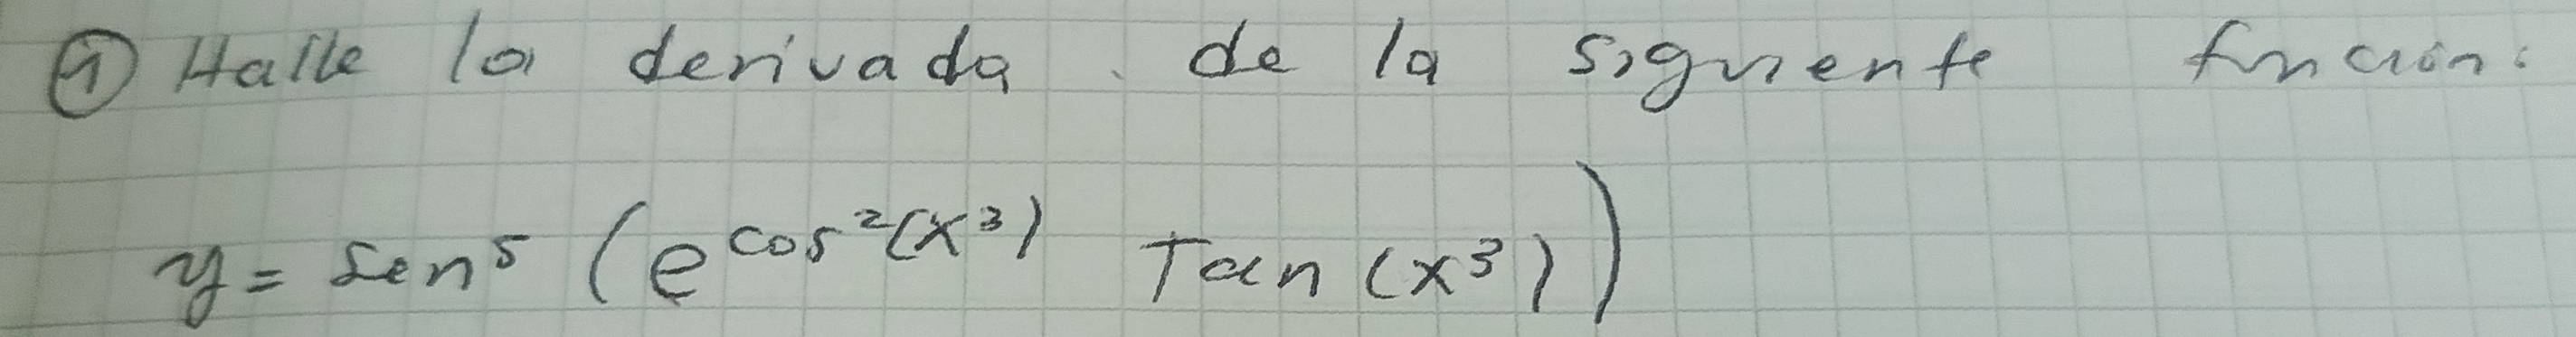 ① Halle la derivada de la siguiente función:
y = sen⁵ (e^cos²(x³) Tan (x³))